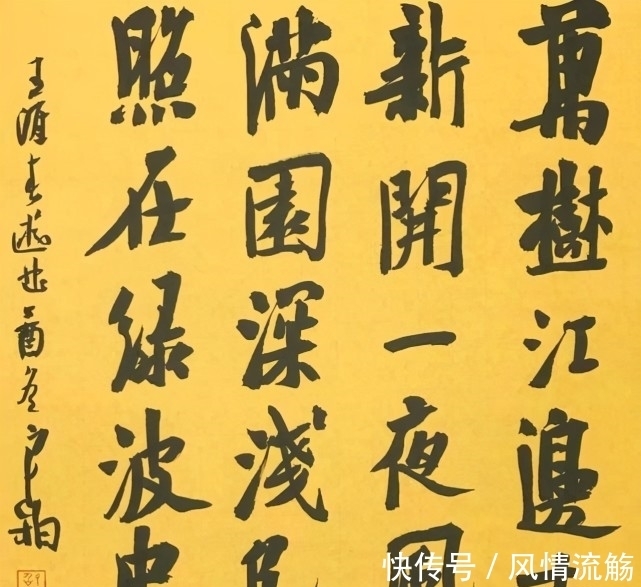 萬樹江邊
新開一夜
滿園深淺
照在綠波
王涯春遊曲乙酉冬
快传号 / 风情流觞